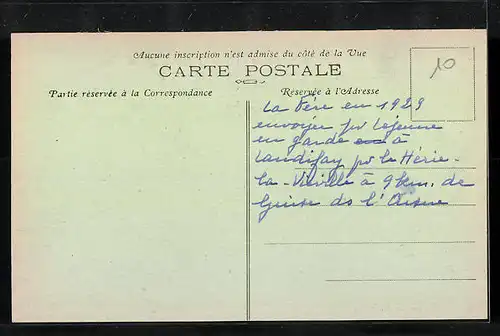 Aucune inscription n'est admise du côté de la Vue
CARTE POSTALE
Partie réservée à la Correspondance
Réservée à l'Adresse
10
La Fère en 1929
envoyée par Lejeune
en garde à
Landifay par le Hérie-
la-Viéville à 9 km. de
Guise ds l'Aisne